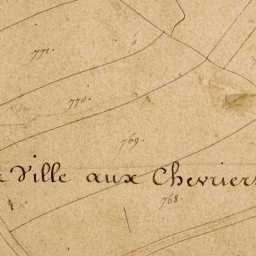 771.
770.
769.
Ville aux Chevriers
768.